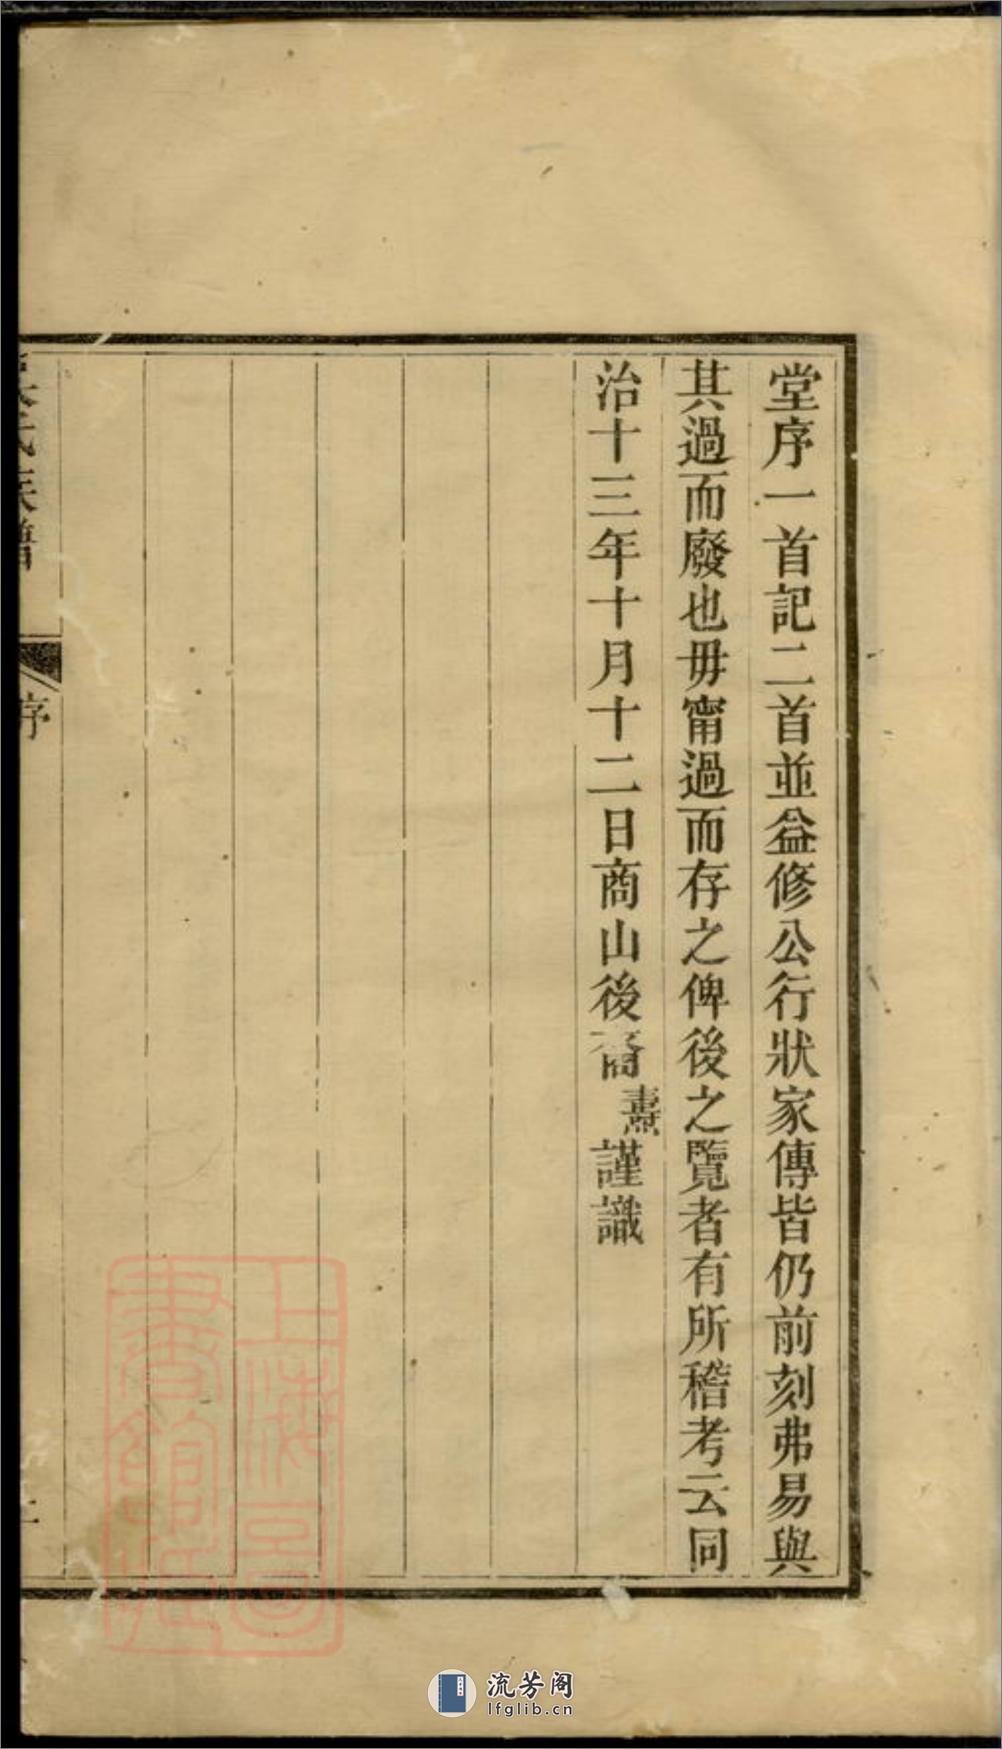 堂序一首記二首並益修公行狀家傳皆仍前刻弗易與
其過而廢也毋甯過而存之俾後之覽者有所稽考云同
治十三年十月十二日商山後裔燾謹識
氏族譜
序
上海圖書館藏
流芳阁
lfglib.cn